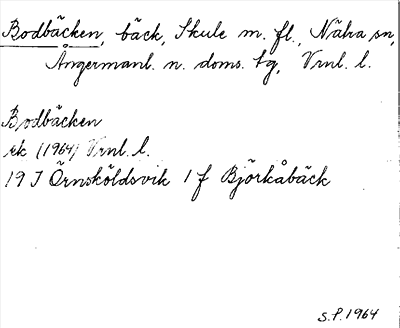 Bodbäcken, bäck, Skule m. fl., Nätra sn,
Ångermanl. n. doms. tg, Vrnl. l.
Bodbäcken
ek (1964) Vrnl. l.
19 J Örnsköldsvik 1 f Björkåbäck
S.P. 1964